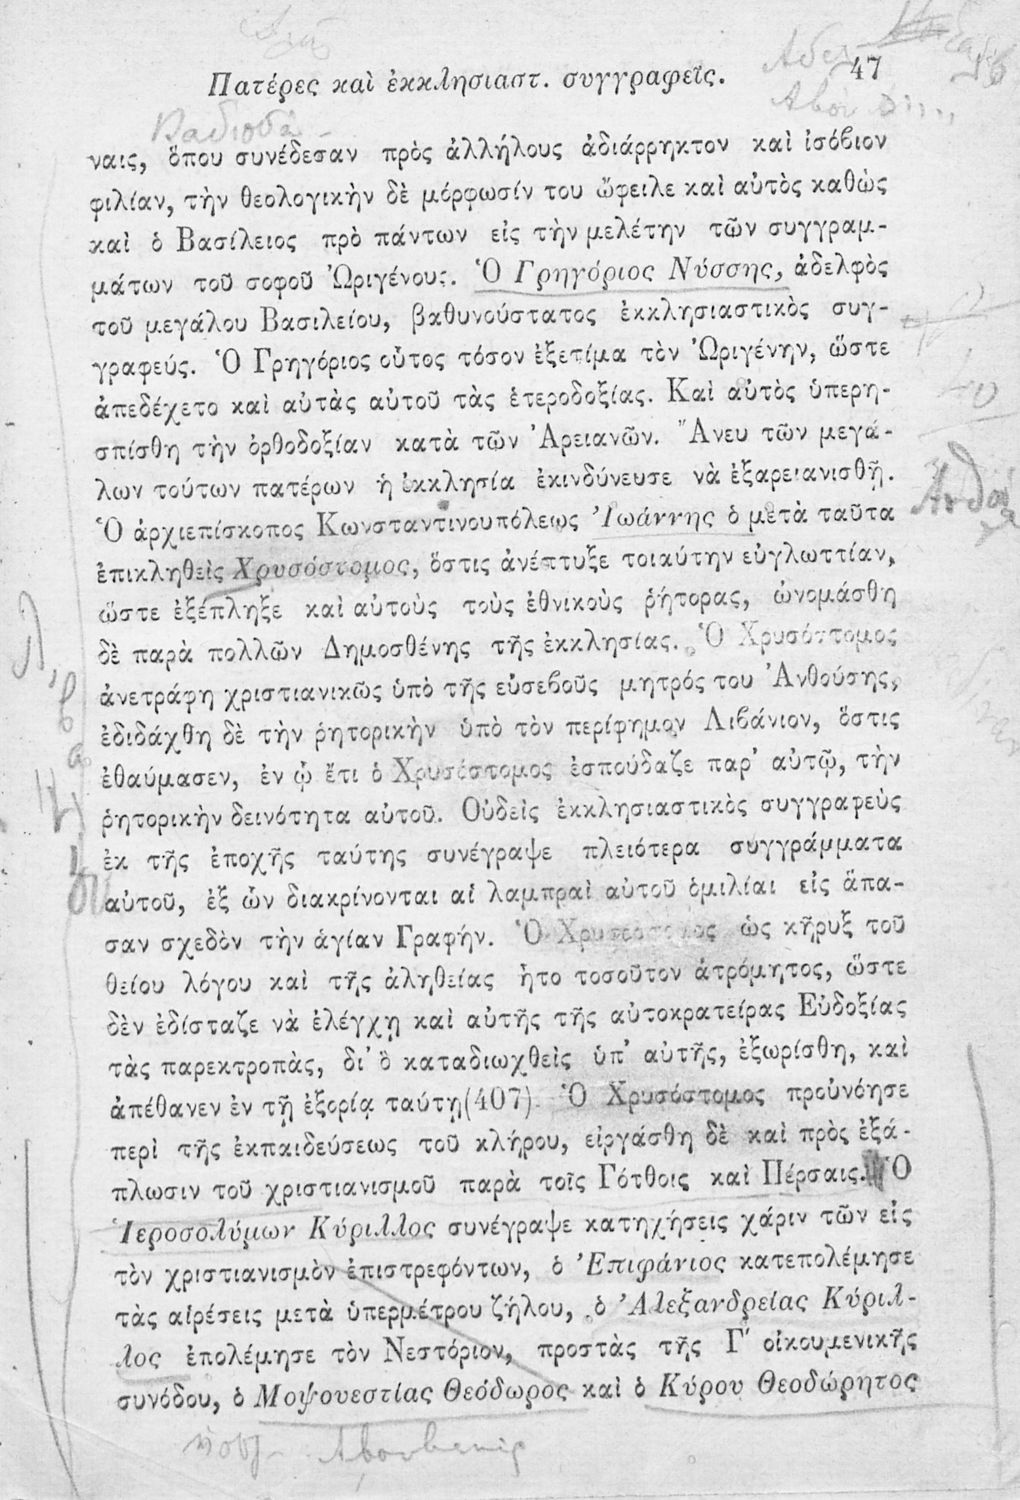 Πατέρες καὶ ἐκκλησιαστ. συγγραφεῖς. 47
ναις, ὅπου συνέδεσαν πρὸς ἀλλήλους ἀδιάρρηκτον καὶ ἰσόβιον
φιλίαν, τὴν θεολογικὴν δὲ μόρφωσίν του ὤφειλε καὶ αὐτὸς καθὼς
καὶ ὁ Βασίλειος πρὸ πάντων εἰς τὴν μελέτην τῶν συγγραμ-
μάτων τοῦ σοφοῦ Ὠριγένους. Ὁ Γρηγόριος Νύσσης, ἀδελφὸς
τοῦ μεγάλου Βασιλείου, βαθυνούστατος ἐκκλησιαστικὸς συγ-
γραφεύς. Ὁ Γρηγόριος οὗτος τόσον ἐξετίμα τὸν Ὠριγένην, ὥστε
ἀπεδέχετο καὶ αὐτὰς αὐτοῦ τὰς ἑτεροδοξίας. Καὶ αὐτὸς ὑπερη-
σπίσθη τὴν ὀρθοδοξίαν κατὰ τῶν Ἀρειανῶν. Ἄνευ τῶν μεγά-
λων τούτων πατέρων ἡ ἐκκλησία ἐκινδύνευσε νὰ ἐξαρειανισθῇ.
Ὁ ἀρχιεπίσκοπος Κωνσταντινουπόλεως Ἰωάννης ὁ μετὰ ταῦτα
ἐπικληθεὶς Χρυσόστομος, ὅστις ἀνέπτυξε τοιαύτην εὐγλωττίαν,
ὥστε ἐξέπληξε καὶ αὐτοὺς τοὺς ἐθνικοὺς ῥήτορας, ὠνομάσθη
δὲ παρὰ πολλῶν Δημοσθένης τῆς ἐκκλησίας. Ὁ Χρυσόστομος
ἀνετράφη χριστιανικῶς ὑπὸ τῆς εὐσεβοῦς μητρός του Ἀνθούσης,
ἐδιδάχθη δὲ τὴν ῥητορικὴν ὑπὸ τὸν περίφημον Λιβάνιον, ὅστις
ἐθαύμασεν, ἐν ᾧ ἔτι ὁ Χρυσόστομος ἐσπούδαζε παρ' αὐτῷ, τὴν
ῥητορικὴν δεινότητα αὐτοῦ. Οὐδεὶς ἐκκλησιαστικὸς συγγραφεὺς
ἐκ τῆς ἐποχῆς ταύτης συνέγραψε πλειότερα συγγράμματα
αὐτοῦ, ἐξ ὧν διακρίνονται αἱ λαμπραὶ αὐτοῦ ὁμιλίαι εἰς ἅπα-
σαν σχεδὸν τὴν ἁγίαν Γραφήν. Ὁ Χρυσόστομος ὡς κῆρυξ τοῦ
θείου λόγου καὶ τῆς ἀληθείας ἦτο τοσοῦτον ἀτρόμητος, ὥστε
δὲν ἐδίσταζε νὰ ἐλέγχῃ καὶ αὐτῆς τῆς αὐτοκρατείρας Εὐδοξίας
τὰς παρεκτροπὰς, δι' ὃ καταδιωχθεὶς ὑπ' αὐτῆς, ἐξωρίσθη, καὶ
ἀπέθανεν ἐν τῇ ἐξορίᾳ ταύτῃ(407). Ὁ Χρυσόστομος προὐνόησε
περὶ τῆς ἐκπαιδεύσεως τοῦ κλήρου, εἰργάσθη δὲ καὶ πρὸς ἐξά-
πλωσιν τοῦ χριστιανισμοῦ παρὰ τοῖς Γότθοις καὶ Πέρσαις. Ὁ
Ἱεροσολύμων Κύριλλος συνέγραψε κατηχήσεις χάριν τῶν εἰς
τὸν χριστιανισμὸν ἐπιστρεφόντων, ὁ Ἐπιφάνιος κατεπολέμησε
τὰς αἱρέσεις μετὰ ὑπερμέτρου ζήλου, ὁ Ἀλεξανδρείας Κύριλ-
λος ἐπολέμησε τὸν Νεστόριον, προστὰς τῆς Γ' οἰκουμενικῆς
συνόδου, ὁ Μοψουεστίας Θεόδωρος καὶ ὁ Κύρου Θεοδώρητος